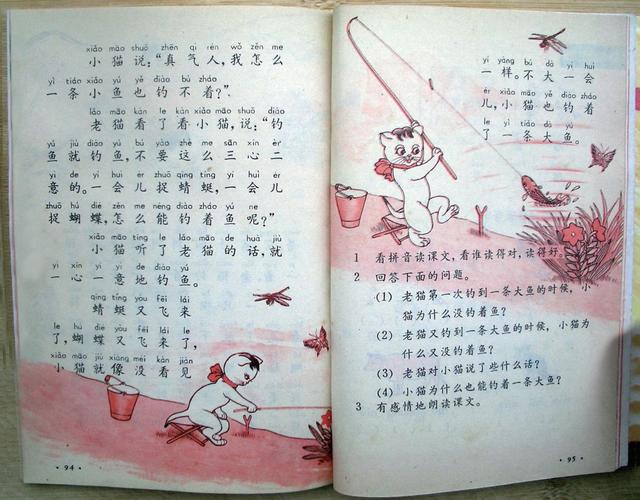 xiǎo māo shuō zhēn qì rén wǒ zěn me
小猫说:“真气人,我怎么
yì tiáo xiǎo yú yě diào bù zháo
一条小鱼也钓不着?”
lǎo māo kàn le kàn xiǎo māo shuō diào
老猫看了看小猫,说:“钓
yú jiù diào yú bú yào zhè me sān xīn èr
鱼就钓鱼,不要这么三心二
yì de yí huì ér zhuō qīng tíng yí huì ér
意的。一会儿捉蜻蜓,一会儿
zhuō hú dié zěn me néng diào zháo yú ne
捉蝴蝶,怎么能钓着鱼呢?”
xiǎo māo tīng le lǎo māo de huà jiù
小猫听了老猫的话,就
yì xīn yí yì de diào yú
一心一意地钓鱼。
qīng tíng yòu fēi lái
蜻蜓又飞来
le hú dié yòu fēi lái le
了,蝴蝶又飞来了,
xiǎo māo jiù xiàng méi kàn jiàn
小猫就像没看见
· 94 ·
yí yàng bú dà yí huì
一样。不大一会
ér xiǎo māo yě diào zháo
儿,小猫也钓着
le yì tiáo dà yú
了一条大鱼。
1 看拼音读课文,看谁读得对,读得好。
2 回答下面的问题。
(1) 老猫第一次钓到一条大鱼的时候,小
猫为什么没钓着鱼?
(2) 老猫又钓到一条大鱼的时候,小猫为
什么又没钓着鱼?
(3) 老猫对小猫说了些什么话?
(4) 小猫为什么也能钓着一条大鱼?
3 有感情地朗读课文。
· 95 ·